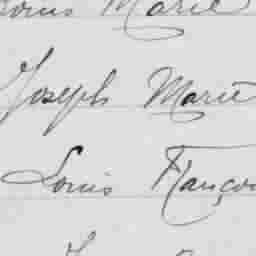 Louis Marie
Joseph Marie
Louis Françoi